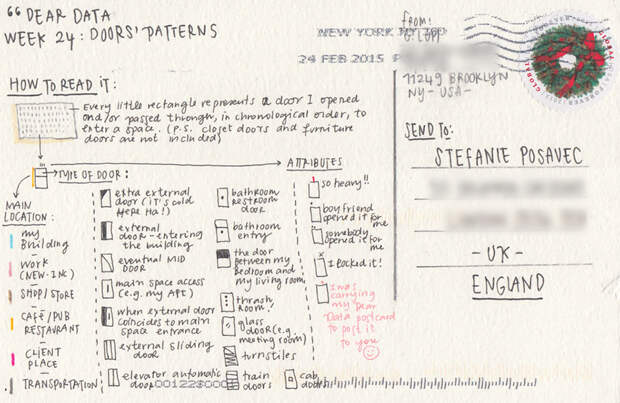 “ DEAR DATA
WEEK 24: DOORS' PATTERNS
HOW TO READ IT:
Every little rectangle represents a door I opened
and/or passed through, in chronological order, to
enter a space. (p.s. closet doors and furniture
doors are not included)
TYPE OF DOOR:
ATTRIBUTES
MAIN
LOCATION:
my
Building
WORK
(NEW.INC)
SHOP/STORE
CAFÉ/PUB
RESTAURANT
CLIENT
PLACE
TRANSPORTATION
extra external
door (it's cold
HERE Ha!)
external
door - entering
the building
eventual MID
DOOR
main space access
(e.g. my Apt)
when external door
coincides to main
space entrance
external sliding
door
elevator automatic
door
bathroom
restroom
door
bathroom
entry
the door
between my
bedroom and
my living room
thrash
room!
glass
door (e.g.
meeting room)
turnstiles
train
doors
cab
doors
so heavy!!
boyfriend
opened it for
me
somebody
opened it for
me
I locked it!
I was
carrying
my Dear
Data postcard
to post it
to you
NEW YORK NY 100
24 FEB 2015 P
FROM:
G. LUPI
11249 BROOKLYN
NY - USA -
GLOBAL
FOREVER
SEND TO:
STEFANIE POSAVEC
- UK -
ENGLAND